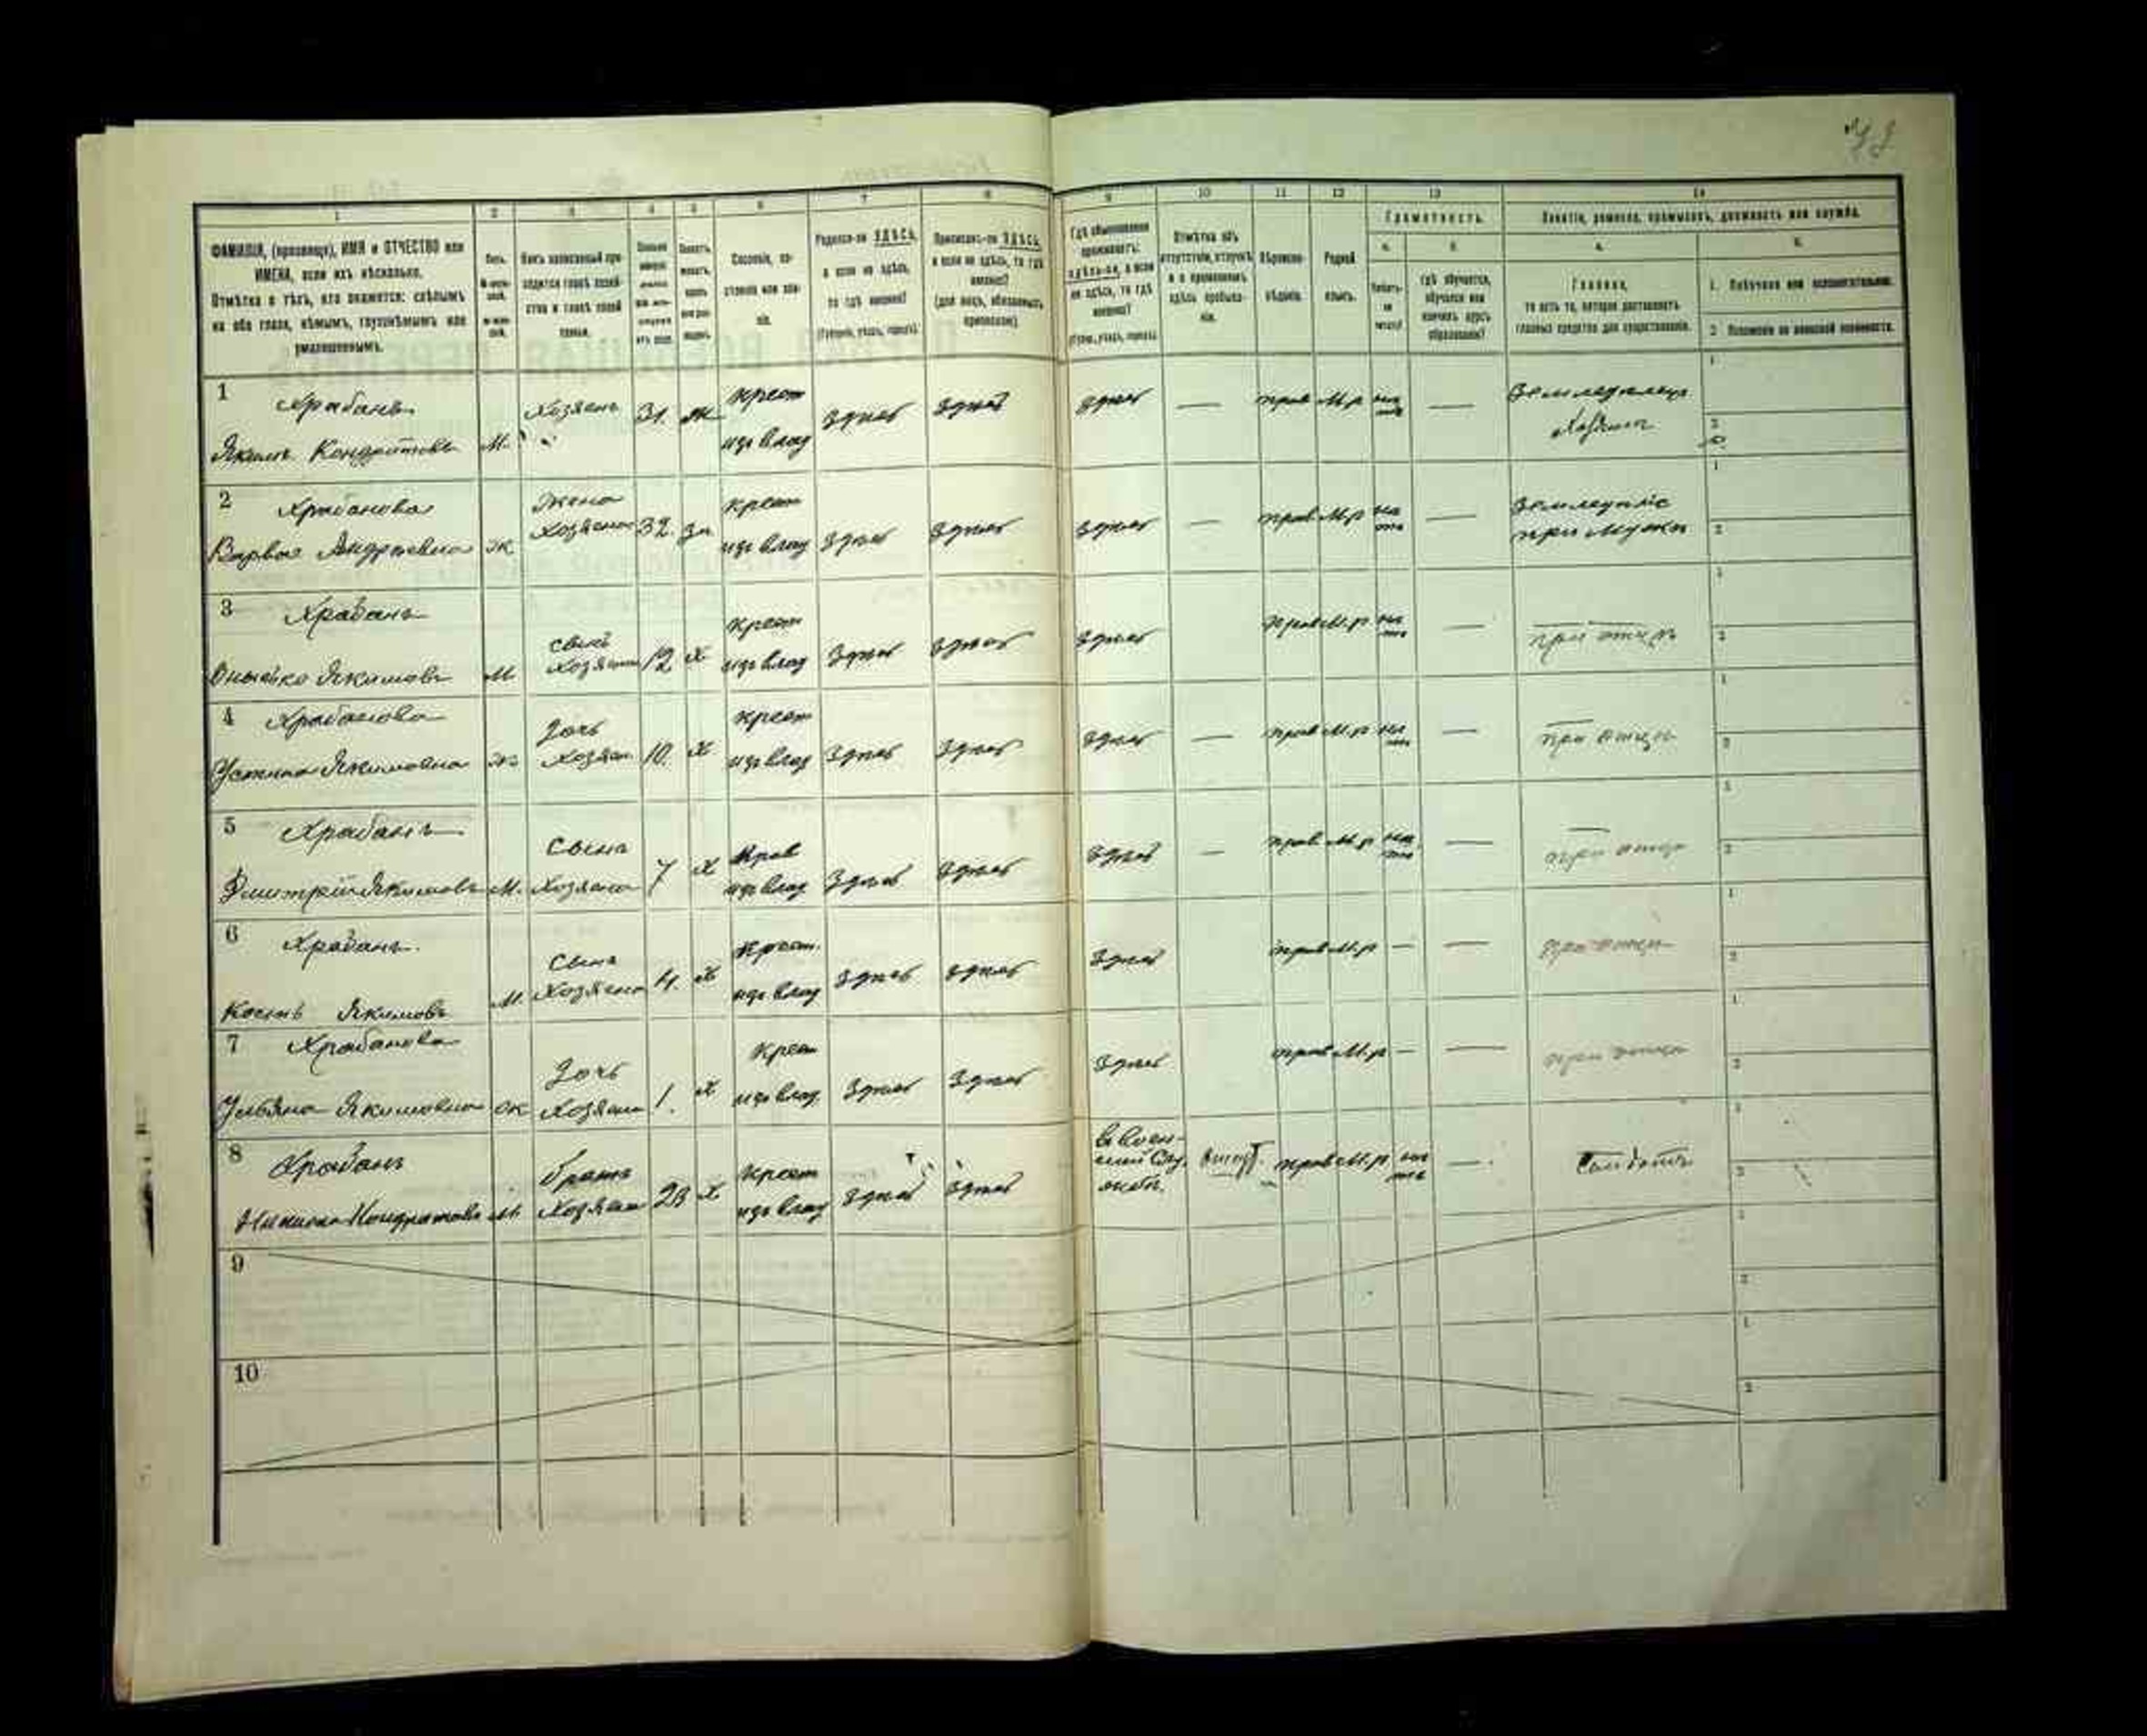 1 2 3 4 5 6 7 8 9 10 11 12 13 14
ФАМИЛІЯ, (прозвище), ИМЯ и ОТЧЕСТВО или
ИМЕНА, если ихъ нѣсколько.
Отмѣтка о тѣхъ, кто окажется: слѣпымъ
на оба глаза, нѣмымъ, глухонѣмымъ или
умалишеннымъ.
Полъ.
Родился-ли ЗДѢСЬ,
а если не здѣсь,
то гдѣ именно?
(Губернія, уѣздъ, городъ).
Приписанъ-ли ЗДѢСЬ,
а если не здѣсь, то гдѣ
именно?
(для лицъ, обязанныхъ
припискою).
Гдѣ обыкновенно
проживаетъ:
здѣсь-ли, а если
не здѣсь, то гдѣ
именно?
Отмѣтка объ
отсутствіи, отлучкѣ
и о временномъ
здѣсь пребыва-
ніи.
Вѣроиспо-
вѣданіе.
Родной
языкъ.
Грамотность.
а. б.
гдѣ обучается,
обучался или
кончилъ курсъ
образованія?
Занятіе, ремесло, промыселъ, должность или служба.
а.
Главное,
то есть то, которое доставляетъ
главныя средства для существованія.
б.
1. Побочное или вспомогательное.
2. Положеніе по воинской повинности.
1 Храбанъ
Якимъ Кондратовъ М. Хозяинъ 31. ж крест
изъ влад здѣсь здѣсь здѣсь — прав М.р нѣ
тъ — Земледѣлецъ
Хозяинъ
2 Храбанова
Варвара Андреевна ж Жена
Хозяина 32. зм крест
изъ влад здѣсь здѣсь здѣсь — прав М.р нѣ
тъ —
при мужѣ
3 Храбанъ
Якимовъ М. сынъ
Хозяина 12 х крест
изъ влад здѣсь здѣсь здѣсь прав М.р нѣ
тъ — при отцѣ
4 Храбанова
Устина Якимовна ж Дочь
Хозяина 10. х крест
изъ влад здѣсь здѣсь здѣсь — прав М.р нѣ
тъ — при отцѣ
5 Храбанъ
Дмитрій Якимовъ М. Сынъ
Хозяина 7 х
изъ влад здѣсь здѣсь здѣсь — прав М.р нѣ
тъ — при отцѣ
6 Храбанъ.
Якимовъ М. Сынъ
Хозяина 4. х Крест.
изъ влад здѣсь здѣсь здѣсь прав М.р — — при отцѣ
7 Храбанова
Ульяна Якимовна ж Дочь
Хозяина 1. х крест
изъ влад. здѣсь здѣсь здѣсь прав М.р — — при отцѣ
8 Храбанъ
Кондратовъ М. братъ
Хозяина 23 х Крест
изъ влад здѣсь здѣсь в воен-
ной слу
жбѣ. прав М.р нѣ
тъ — Солдатъ
9
10